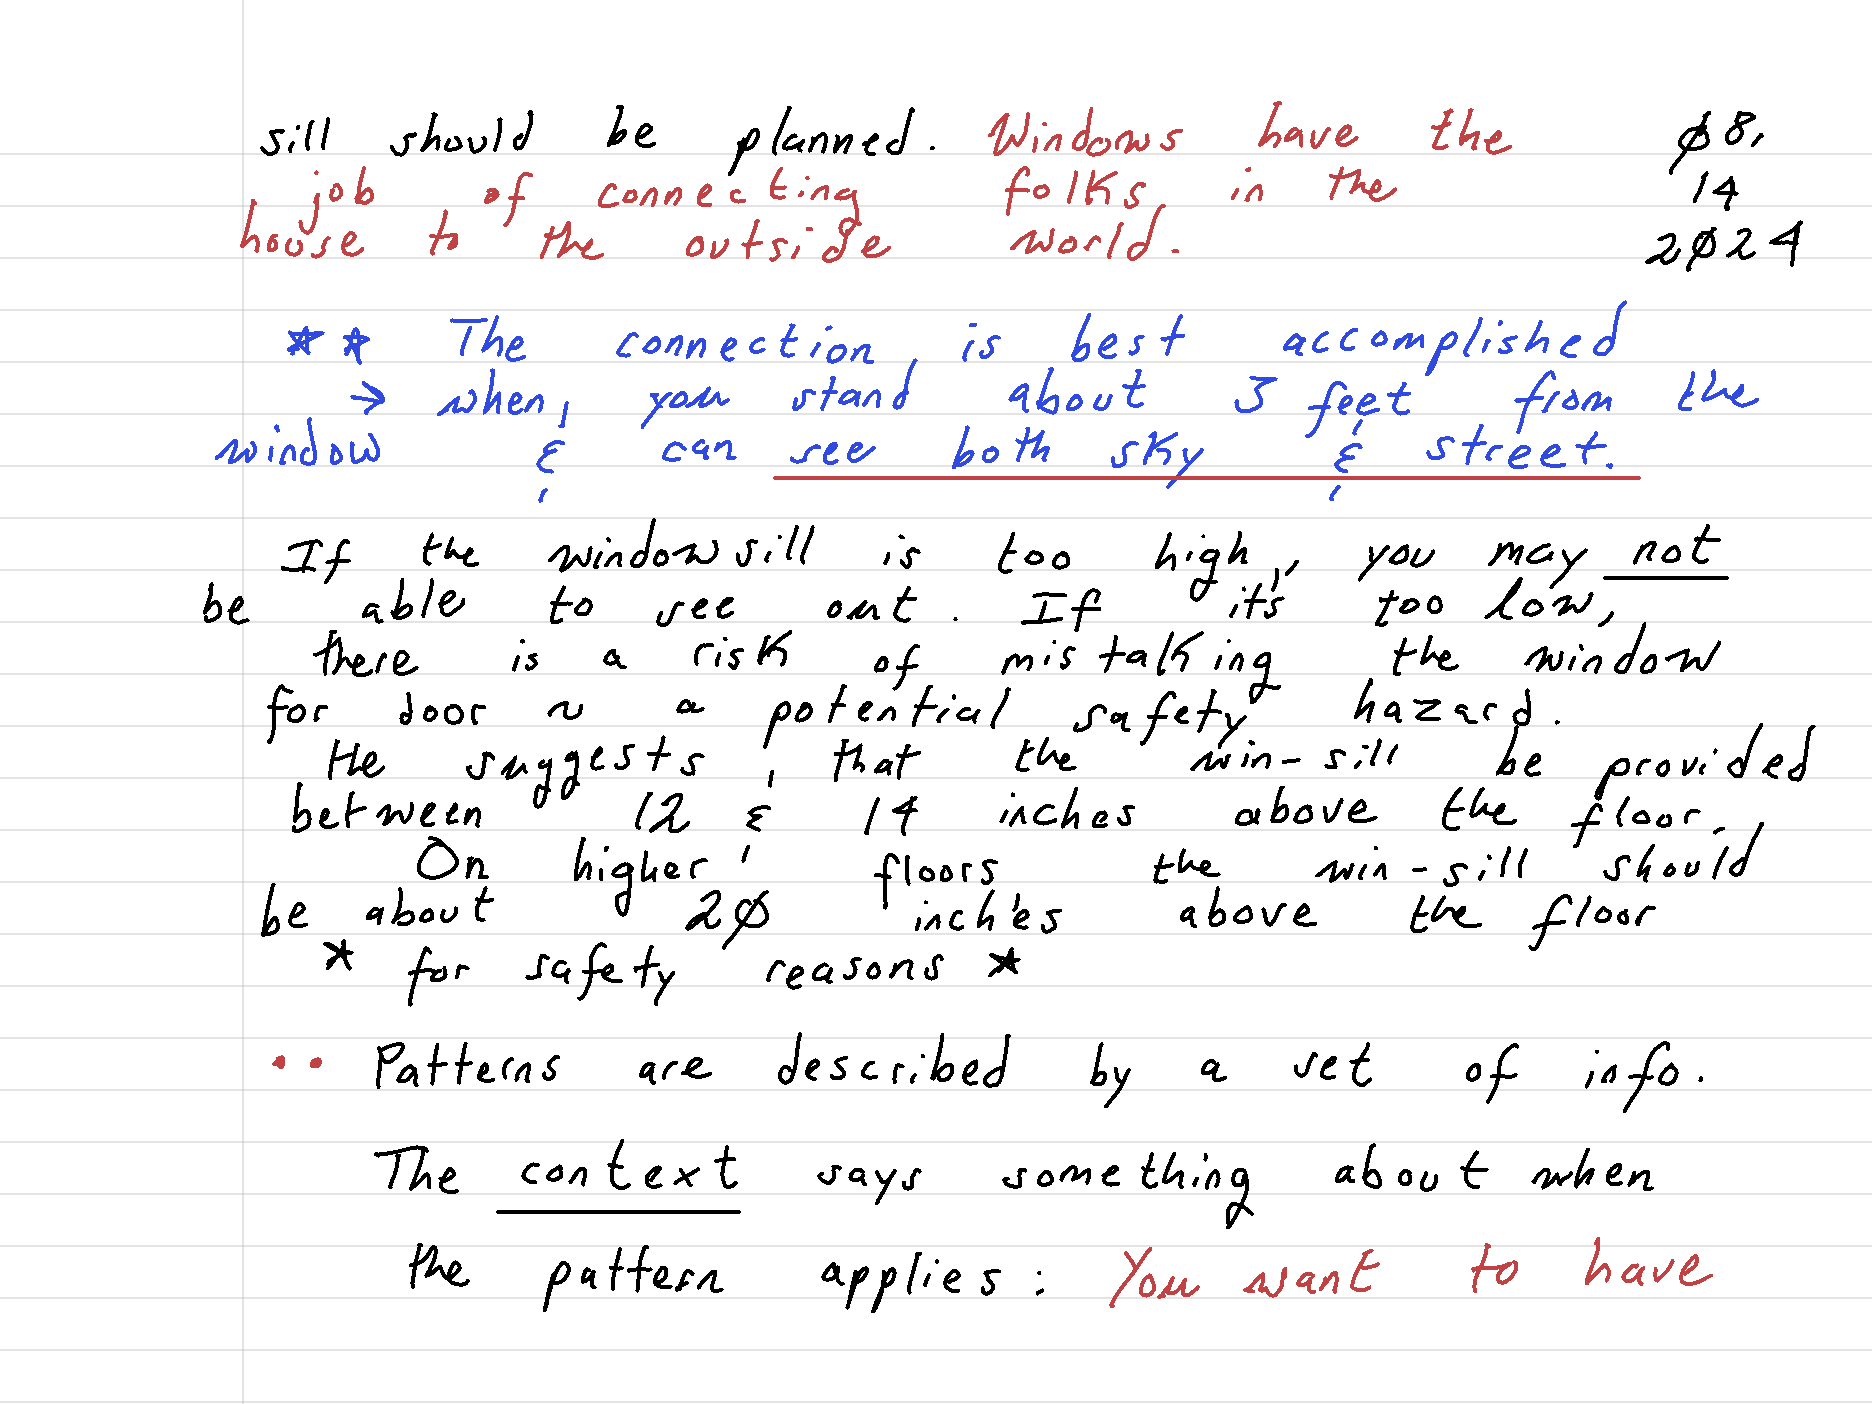 sill should be planned. Windows have the
job of connecting folks in the
house to the outside world.
ø8,
14
2ø24
** The connection is best accomplished
→ when, you stand about 3 feet from the
window & can see both sky & street.
If the windowsill is too high, you may not
be able to see out. If it's too low,
there is a risk of mistalking the window
for door ~ a potential safety hazard.
He suggests, that the win-sill be provided
between 12 & 14 inches above the floor.
On higher floors the win-sill should
be about 2ø inches above the floor
* for safety reasons *
•• Patterns are described by a set of info.
The context says something about when
the pattern applies: You want to have